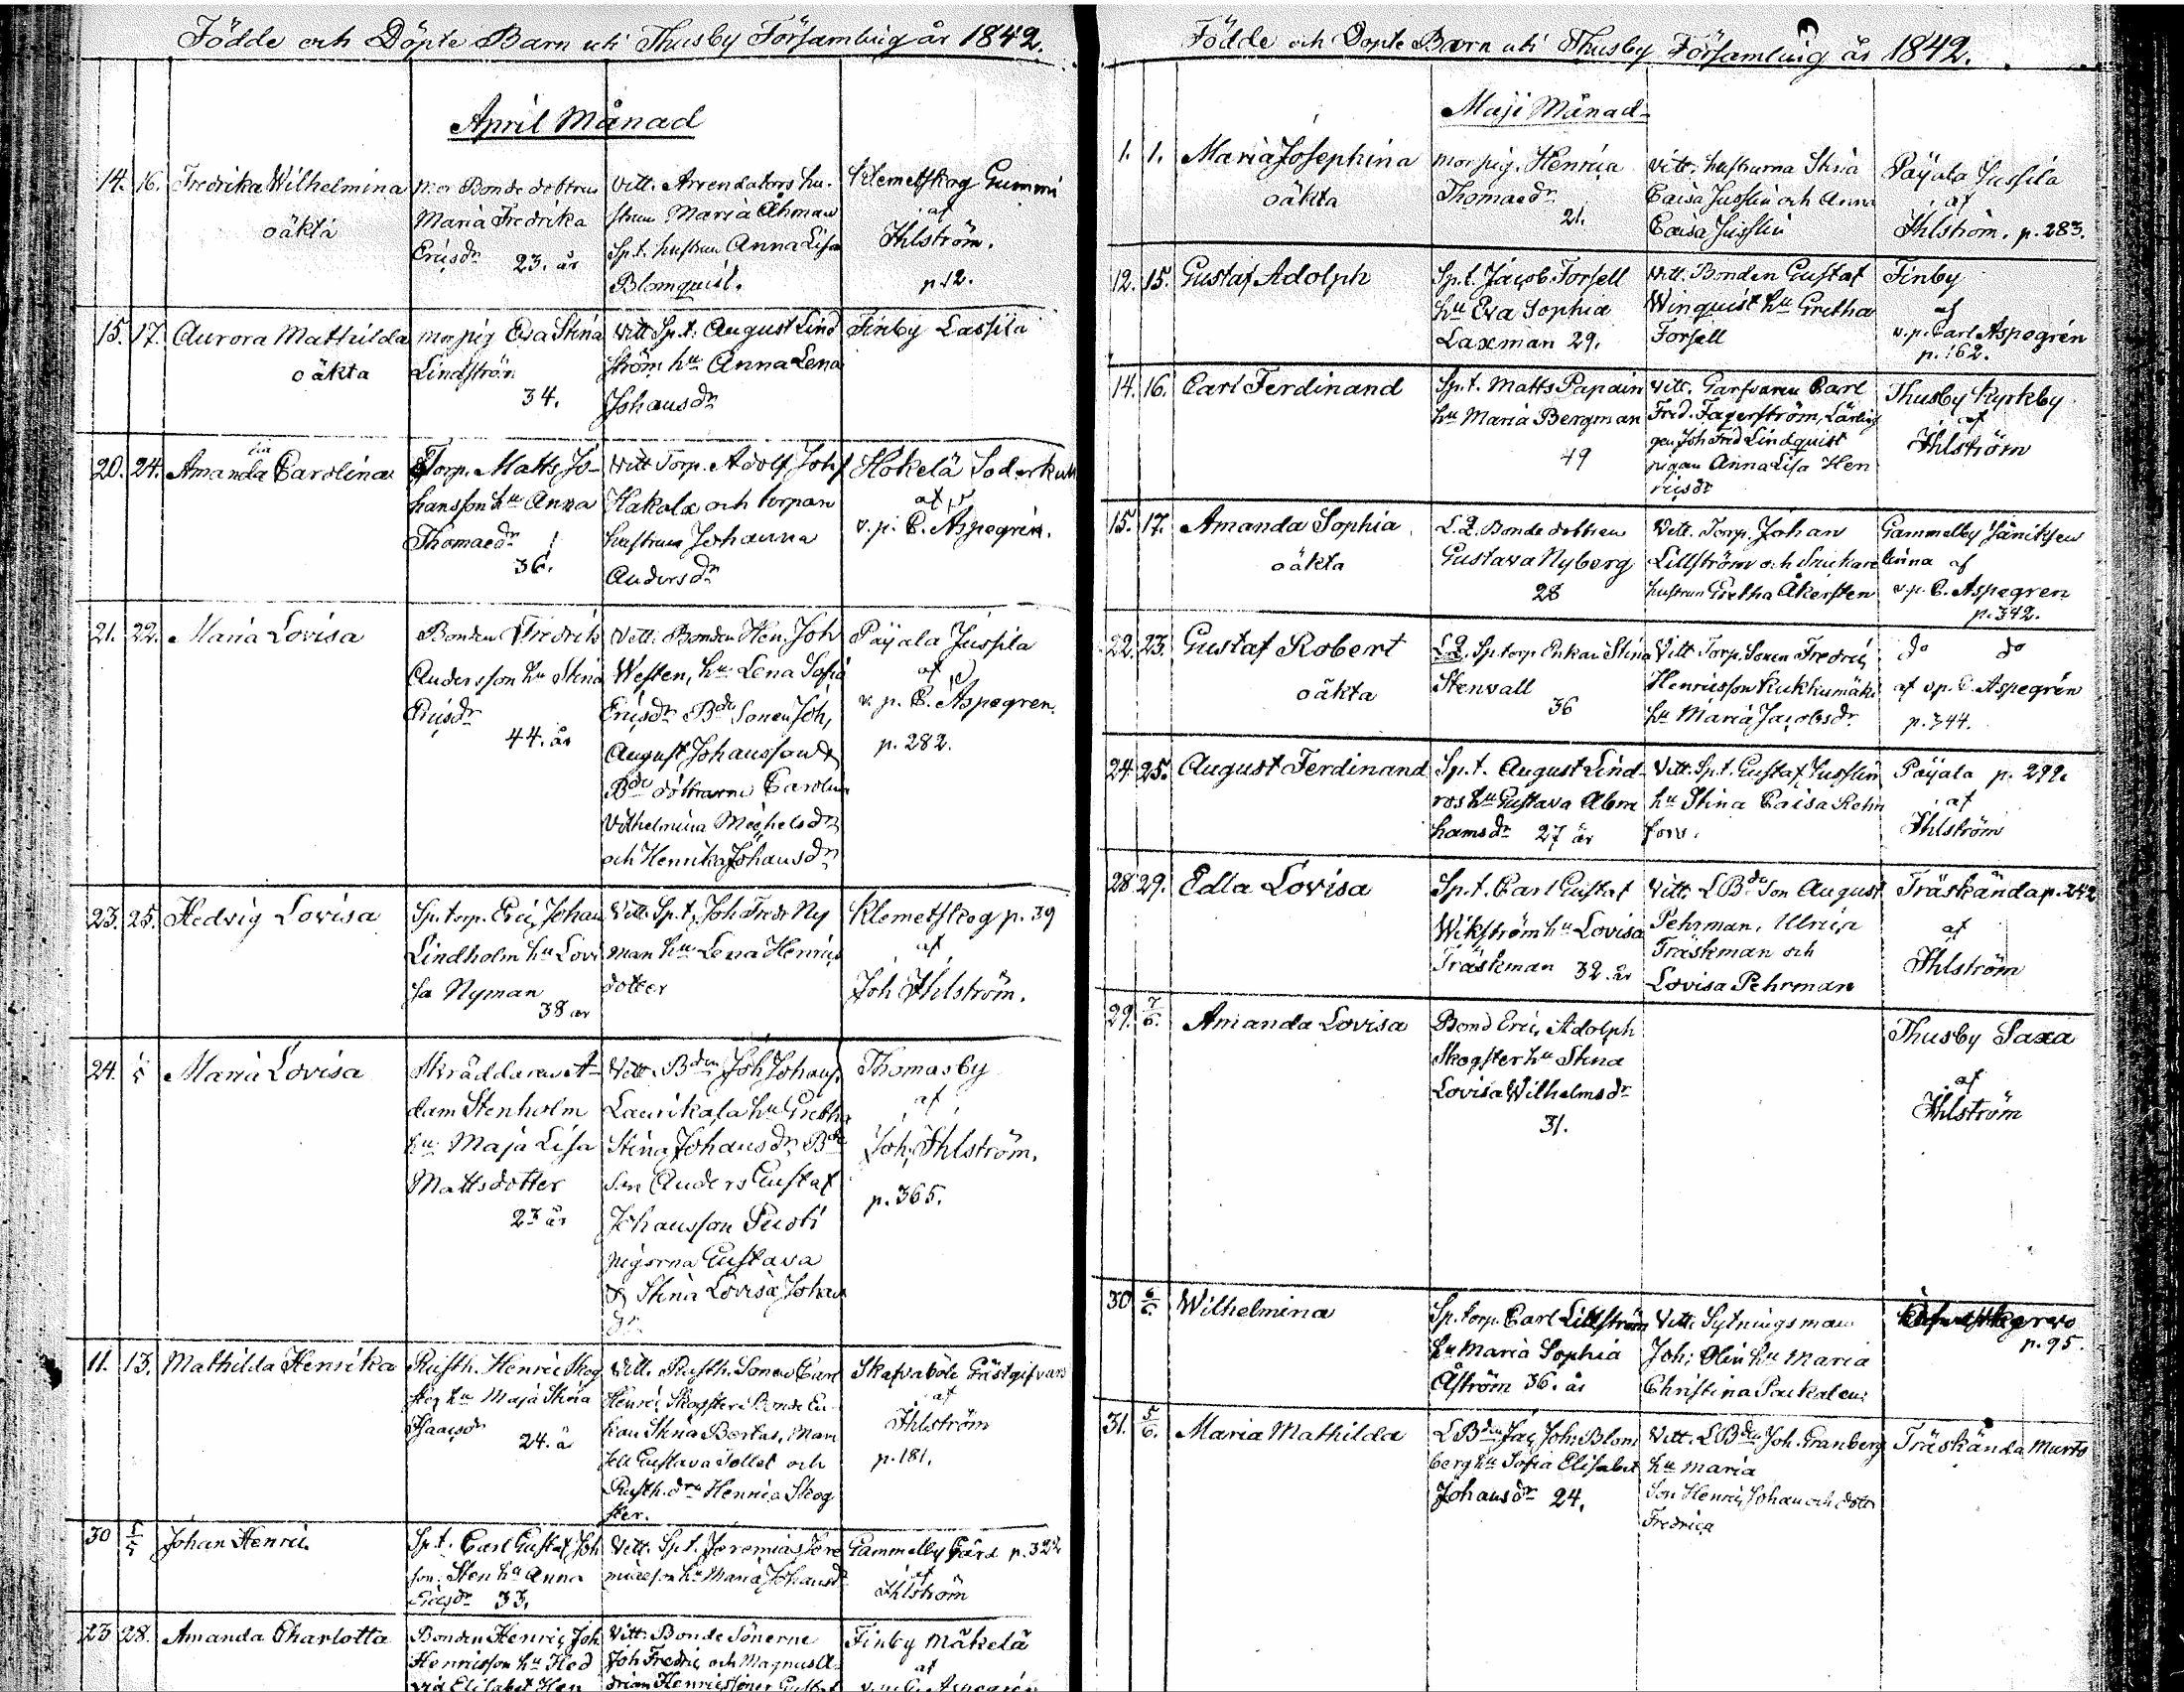 Födde och Döpte Barn uti Thusby Församling år 1842.
April Månad
14. 16. Fredrika Wilhelmina
oäkta
Mor Bonde dottren
Maria Fredrika
Ericsdr 23. år
Vitt. Arrendators hu-
strun Maria Åhman
Sp.t. hustrun Anna Lisa
Blomquist.
Klemetskog Gummi
af
Ihlström.
p. 12.
15. 17. Aurora Mathilda
oäkta
mor pig Eva Stina
Lindström
34.
Vitt Sp.t. August Lind
ström hu Anna Lena
Johansdr
Finby Lassila
20. 24. Amanda Carolina
Torp. Matts Jo-
hansson hu Anna
Thomaedr
36.
Vitt Torp. Adolf Johs
Hakala och torpar
hustrun Johanna
Andersdr
Hokelä Soderkull
af
v.p. C. Aspegrén.
21. 22. Maria Lovisa
Bonden Fredrik
Andersson hu Stina
Ericsdr
44. år
Vitt. Bonden Hen. Joh
Westen, hu Lena Sofia
Ericsdr Bde Sonen Joh,
August Johansson &
Bde döttrarne Carolin
Vilhelmina Michelsdr
och Henrika Johansdr
Päyala Jussila
af
v. p. C. Aspegren.
p. 282.
23. 25. Hedvig Lovisa
Sp. torp. Eric Johan
Lindholm hu Lovi
sa Nyman
38 år
Vitt. Sp.t. Joh Fredr Ny
man hu Lena Henrics
dotter
Klemetskog p. 39
af
Joh Ihlström.
24. Maria Lovisa
Skräddaren A-
dam Stenholm
hu Maja Lisa
Mattsdotter
23 år
Vitt. Bden Joh Johans.
Laurikala hu Gretha
Stina Johansdr Bde
Son Anders Gustaf
Johansson Pusti
pigorna Gustava
& Stina Lovisa Johan
dr
Thomasby
af
Joh; Ihlström.
p. 365.
11. 13. Mathilda Henrika
Rusth. Henric Skog
ster hu Maja Stina
Isaacsdr
24. å
Vitt. Rusth. Sonen Carl
Henric Skogster Bonde En-
kan Stina Bertas, Mam
sell Gustava Sollet och
Rusth. dr Henrica Skog
ster.
Skafvaböle Gästgifvars
af
Ihlström
p. 181.
30 5/5 Johan Henric
Sp.t. Carl Gustaf Joh
son Sten hu Anna
Ericsdr 33.
Vitt. Sp.t. Jeremias Jere
miaesson hu Maria Johansdr
Gammelby Gård p. 322
af
Ihlström
23 28. Amanda Charlotta
Bonden Henric Joh
Henricsson hu Hed
vig Elisabet Hen
Vitt. Bonde Sönerne
Joh Fredric och Magnus A-
drian Henricssöner Gustaf
Finby Mäkelä
af
v.p. C. Aspegrén
Födde och Döpte Barn uti Thusby Församling år 1842.
Maji Månad
1. 1. Maria Josephina
oäkta
mor pig. Henrica
Thomaedr
21.
Vitt. hustrurna Stina
Caisa Jusslin och Anna
Caisa Jusslin
Päyala Jussila
af
Ihlström. p. 283.
12. 15. Gustaf Adolph
Sp.t. Jacob Forsell
hu Eva Sophia
Laxman 29.
Vitt. Bonden Gustaf
Winquist hu Gretha
Forsell
Finby
af
v.p. Carl Aspegrén
p. 162.
14. 16. Carl Ferdinand
Sp.t. Matts Papain
hu Maria Bergman
49
Vitt. Garfvaren Carl
Fred. Fagerström, Lärlin
gen Joh Fred Lindquist
pigan Anna Lisa Hen
ricsdr
Thusby Kyrkby
af
Ihlström
15. 17. Amanda Sophia
oäkta
L.L. Bonde dottren
Gustava Nyberg
28
Vitt. Torp. Johan
Lillström och Snickare
hustrun Gretha Åkersten
Gammelby Jäniksen
linna af
v.p. C. Aspegren
p. 342.
22. 23. Gustaf Robert
oäkta
L.L. Sp torp Enkan Stina
Stenvall
36
Vitt Torp. Sonen Fredric
Henricsson Kukkumäki
hu Maria Jacobsdr
do do
af v.p. C. Aspegrén
p. 344.
24 25. August Ferdinand
Sp.t. August Lind-
ros hu Gustava Abra
hamsdr 27 år
Vitt. Sp.t. Gustaf Jusslin
hu Stina Caisa Rehn
fors.
Päyala p. 292.
af
Ihlström
28 29. Edla Lovisa
Sp.t. Carl Gustaf
Wikström hu Lovisa
Träskman 32. år
Vitt. L Bde Son August
Pehrman, Ulrica
Träskman och
Lovisa Pehrman
Träskända p. 242
af
Ihlström
29. 7/6. Amanda Lovisa
Bond Eric Adolph
Skogster hu Stina
Lovisa Wilhelmsdr
31.
Thusby Saxa
af
Ihlström
30 6/6. Wilhelmina
Sp. torp. Carl Lillström
hu Maria Sophia
Åström 36. år
Vitt. Sytningsman
Joh; Olin hu Maria
Christina Packalen
p. 95.
31. 5/6. Maria Mathilda
L Bden Jac Joh; Blom
berg hu Sofia Elisabet
Johansdr 24.
Vitt. L Bden Joh. Granberg
hu Maria
Son Henric Johan och dotr
Fredrica
Träskända Murto